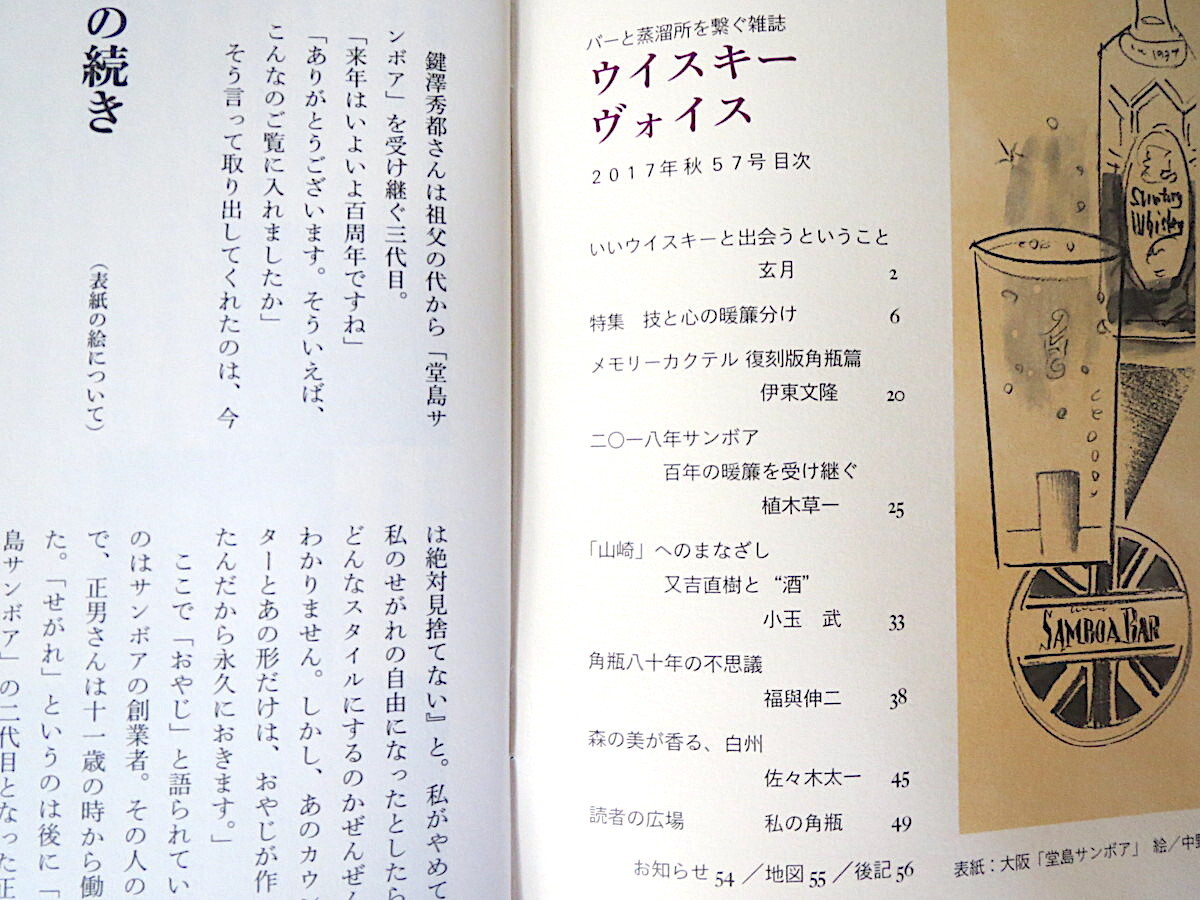 の続き
（表紙の絵について）
鍵澤秀都さんは祖父の代から「堂島サ
ンボア」を受け継ぐ三代目。
「来年はいよいよ百周年ですね」
「ありがとうございます。そういえば、
こんなのご覧に入れましたか」
そう言って取り出してくれたのは、今
は絶対見捨てない』と。私がやめて
私のせがれの自由になったとしたら
どんなスタイルにするのかぜんぜん
わかりません。しかし、あのカウン
ターとあの形だけは、おやじが作
たんだから永久におきます。」
ここで「おやじ」と語られてい
のはサンボアの創業者。その人の
で、正男さんは十一歳の時から働
た。「せがれ」というのは後に「
島サンボア」の二代目となった正
バーと蒸溜所を繋ぐ雑誌
ウイスキー
ヴォイス
2017年 秋 57号 目次
いいウイスキーと出会うということ
玄月 2
特集 技と心の暖簾分け 6
メモリーカクテル 復刻版角瓶篇
伊東文隆 20
二〇一八年サンボア
百年の暖簾を受け継ぐ
植木草一 25
「山崎」へのまなざし
又吉直樹と “酒”
小玉 武 33
角瓶八十年の不思議
福與伸二 38
森の美が香る、白州
佐々木太一 45
読者の広場 私の角瓶 49
お知らせ 54 ／地図 55 ／後記 56
表紙：大阪「堂島サンボア」 絵／中野
1937
Suntory
Whisky
SAMBOA BAR